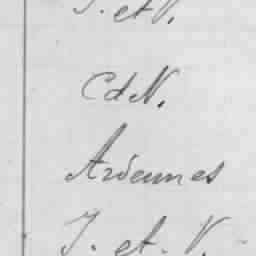 I. et V.
CdN.
Ardennes
I. et. V. -